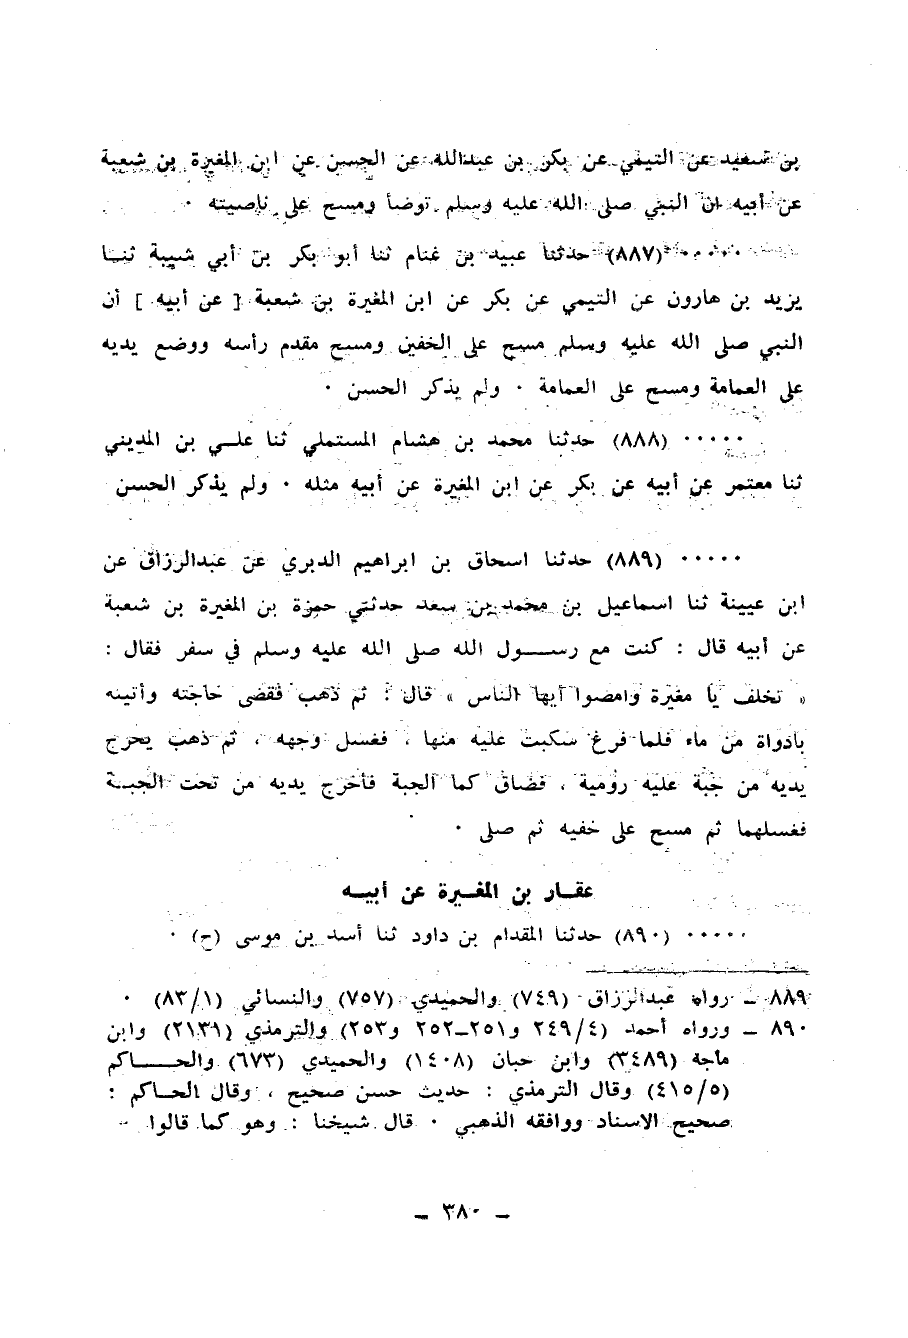 بن سعيد عن التيمي عن بكر بن عبدالله عن الحسن عن ابن المغيرة بن شعبة
عن أبيه ان النبي صلى الله عليه وسلم توضأ ومسح على ناصيته ٠
٠٠٠٠٠ (٨٨٧) حدثنا عبيد بن غنام ثنا أبو بكر بن أبي شيبة ثنا
يزيد بن هارون عن التيمي عن بكر عن ابن المغيرة بن شعبة [ عن أبيه ] أن
النبي صلى الله عليه وسلم مسح على الخفين ومسح مقدم رأسه ووضع يديه
على العمامة ومسح على العمامة ٠ ولم يذكر الحسن ٠
٠٠٠٠٠ (٨٨٨) حدثنا محمد بن هشام المستملي ثنا علي بن المديني
ثنا معتمر عن أبيه عن بكر عن ابن المغيرة عن أبيه مثله ٠ ولم يذكر الحسن
٠٠٠٠٠ (٨٨٩) حدثنا اسحاق بن ابراهيم الدبري عن عبدالرزاق عن
ابن عيينة ثنا اسماعيل بن محمد بن سعد حدثني حمزة بن المغيرة بن شعبة
عن أبيه قال : كنت مع رسول الله صلى الله عليه وسلم في سفر فقال :
« تخلف يا مغيرة وامضوا أيها الناس » قال : ثم ذهب فقضى حاجته وأتيته
بادواة من ماء فلما فرغ سكبت عليه منها ، فغسل وجهه ، ثم ذهب يخرج
يديه من جبة عليه رومية ، فضاق كما الجبة فأخرج يديه من تحت الجبة
فغسلهما ثم مسح على خفيه ثم صلى ٠
عقار بن المغيرة عن أبيه
٠٠٠٠٠ (٨٩٠) حدثنا المقدام بن داود ثنا أسد بن موسى (ح) ٠
٨٨٩ ـ رواه عبدالرزاق (٧٤٩) والحميدي (٧٥٧) والنسائي (٨٣/١) ٠
٨٩٠ ـ ورواه أحمد (٢٤٩/٤ و٢٥١ـ٢٥٢ و٢٥٣) والترمذي (٢١٣١) وابن
ماجة (٣٤٨٩) وابن حبان (١٤٠٨) والحميدي (٦٧٣) والحاكم
(٤١٥/٥) وقال الترمذي : حديث حسن صحيح ، وقال الحاكم :
صحيح الاسناد ووافقه الذهبي ٠ قال شيخنا : وهو كما قالوا ٠
ـ ٣٨٠ ـ